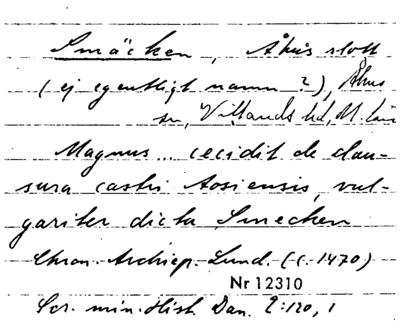 Smäcken, Åhus slott
(ej egentligt namn?), Åhus
sn, Villands hd, M.län
Magnus... cecidit de clau-
sura castri Aosiensis, vul-
gariter dicta Smecken
Chron. Archiep. Lund. (c. 1470)
Nr 12310
Scr. min. Hist. Dan. 2:120, 1